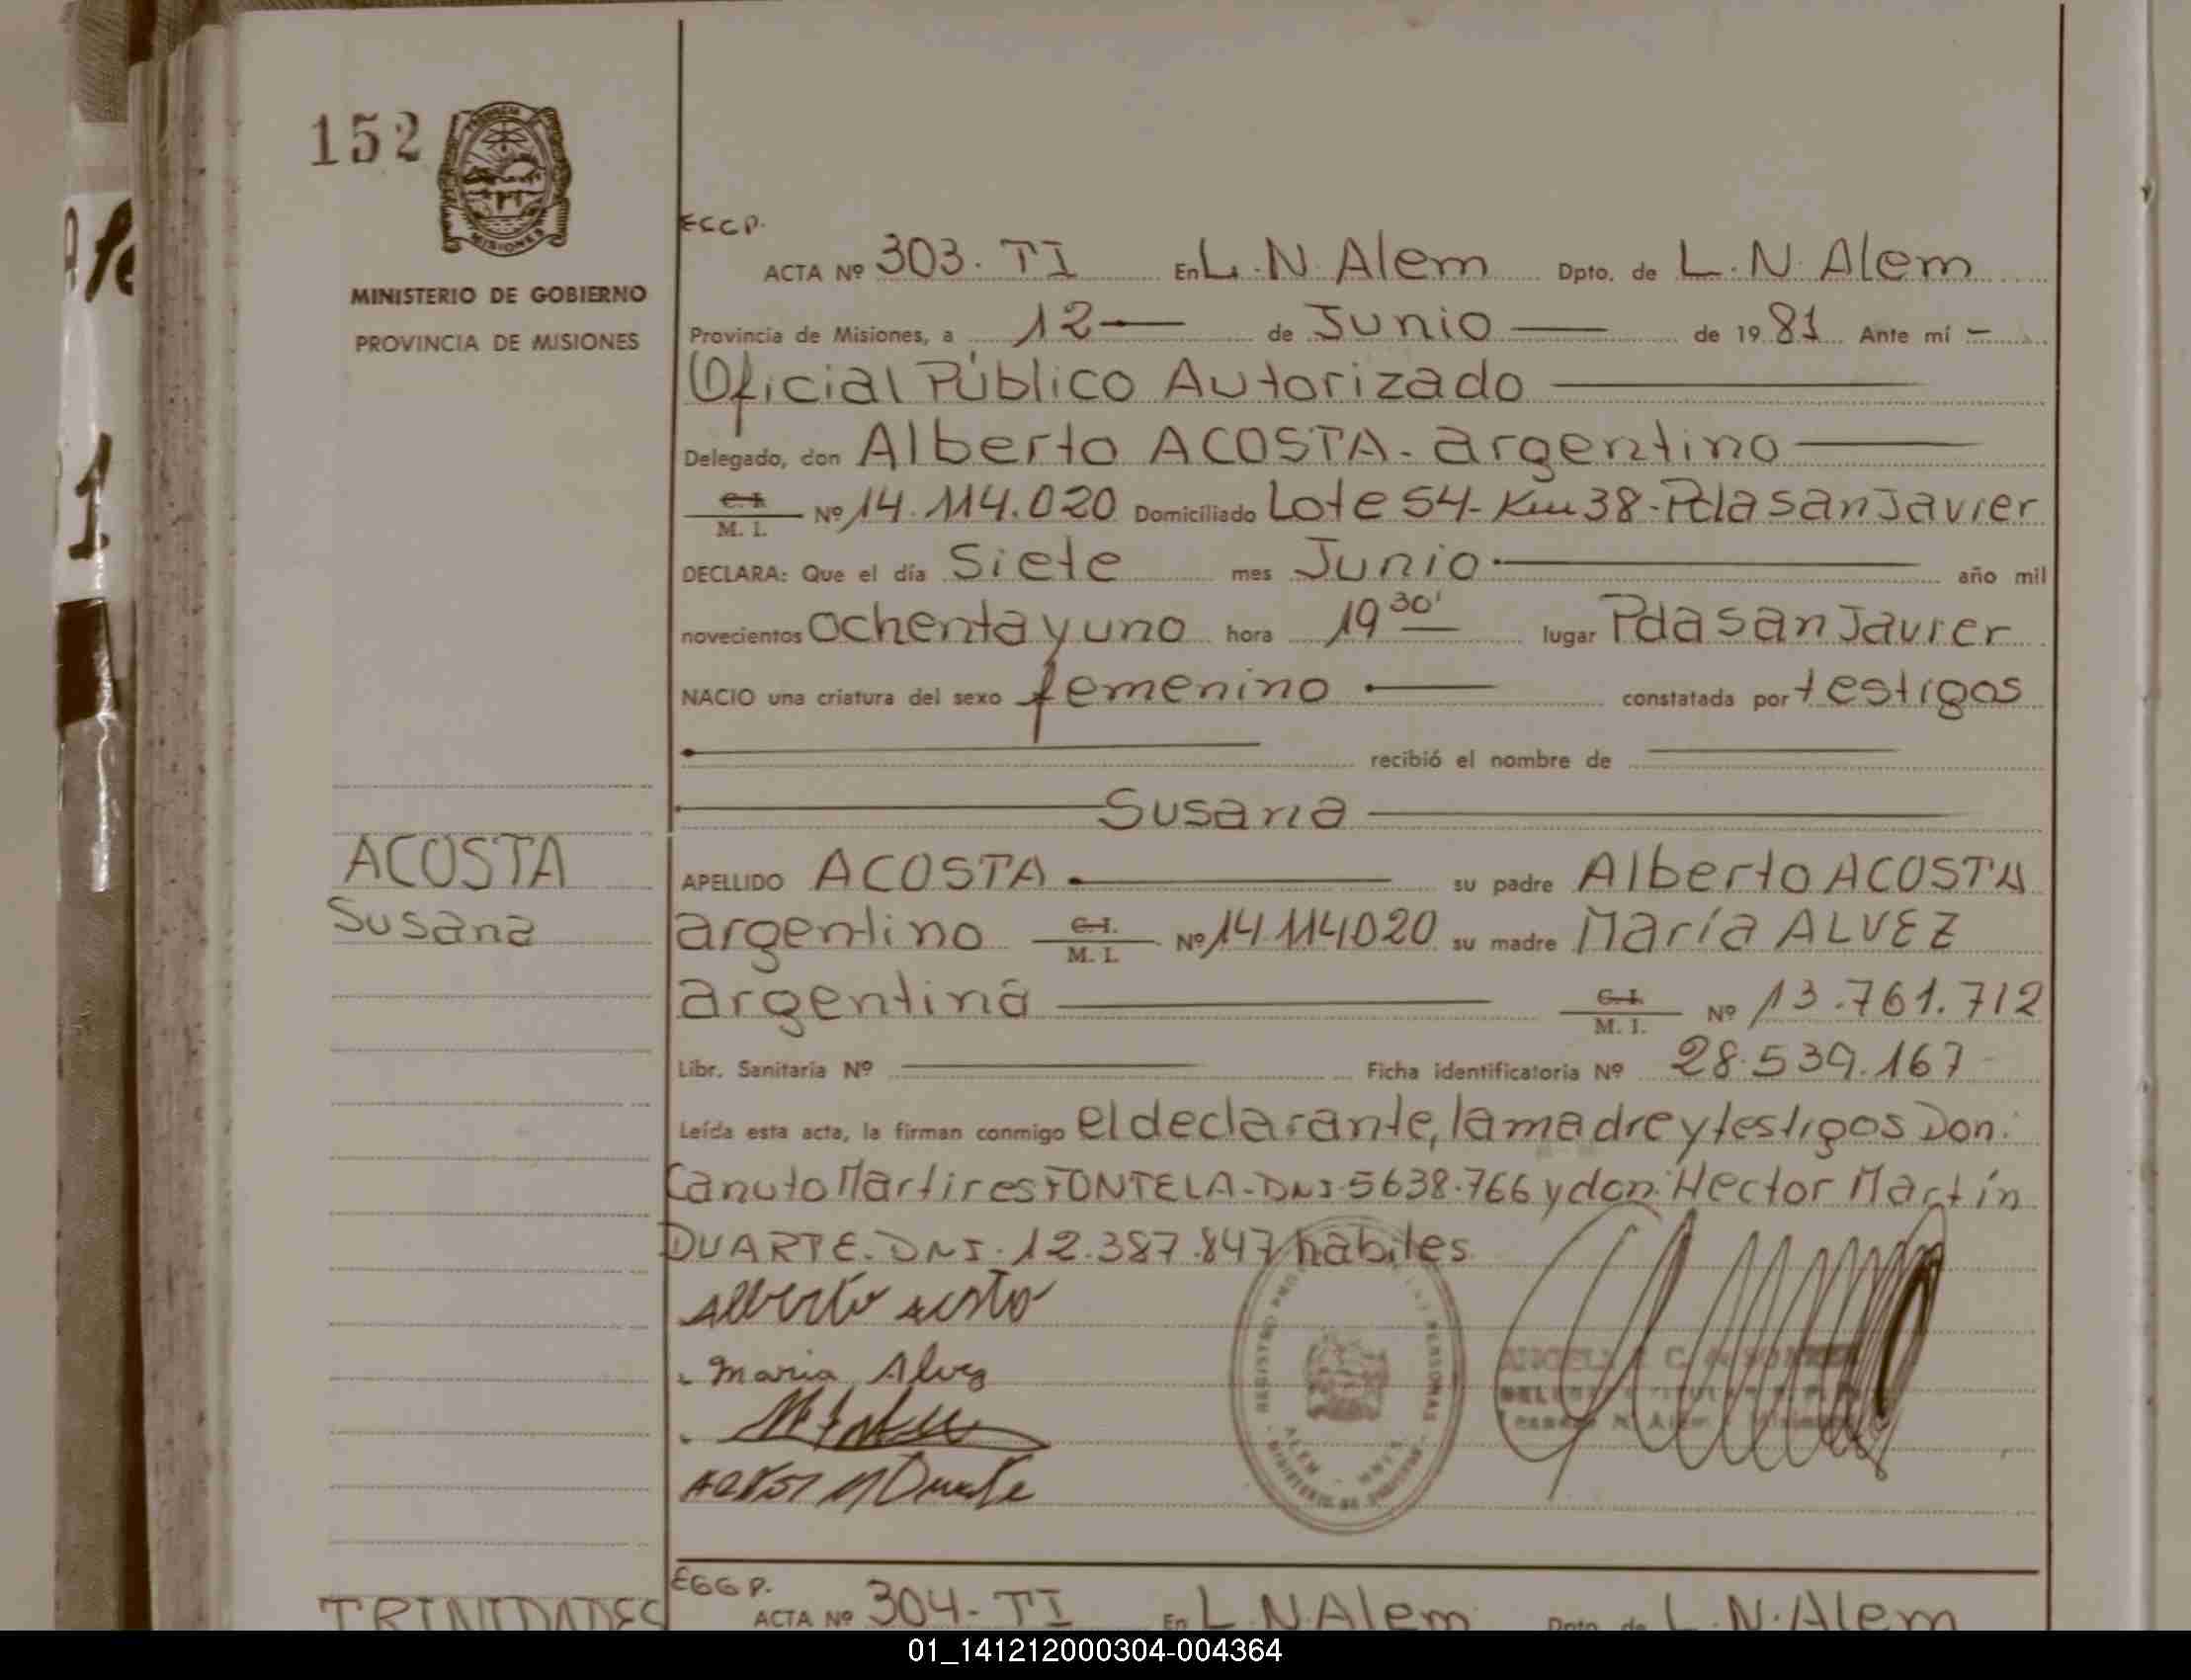 152
MINISTERIO DE GOBIERNO
PROVINCIA DE MISIONES
ACTA Nº 303. TI En L. N. Alem Dpto. de L. N. Alem
Provincia de Misiones, a 12 de Junio de 19 81 Ante mí
Oficial Público Autorizado
Delegado, don Alberto ACOSTA - argentino
C.I. M. I. Nº 14.114.020 Domiciliado Lote 54 - Km 38 - Pda san Javier
DECLARA: Que el día Siete mes Junio año mil
novecientos ochenta y uno hora 19 30' lugar Pda san Javier
NACIO una criatura del sexo femenino constatada por testigos
recibió el nombre de
Susana
ACOSTA
Susana
APELLIDO ACOSTA su padre Alberto ACOSTA
argentino C.I. M. I. Nº 14.114020 su madre María ALVEZ
argentina C.I. M. I. Nº 13.761.712
Libr. Sanitaria Nº Ficha identificatoria Nº 28.539.167
Leída esta acta, la firman conmigo el declarante, la madre y testigos Don.
Canuto Martires FONTELA - DNI. 5638.766 y don. Hector Martín
DUARTE. DNI. 12.387.847 habiles
Alberto
Maria Alvez
Duarte
REGISTRO PERSONAS
ALEM
EGGP.
ACTA Nº 304 - TI En L. N. Alem Dpto de L. N. Alem
TRINIDADES
01_141212000304-004364